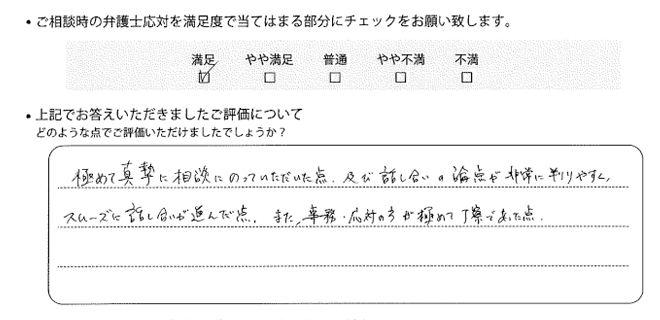 ・ご相談時の弁護士応対を満足度で当てはまる部分にチェックをお願い致します。
満足 やや満足 普通 やや不満 不満
☑ □ □ □ □
・上記でお答えいただきましたご評価について
どのような点でご評価いただけましたでしょうか？
極めて真摯に相談にのっていただいた点、及び話し合いの論点が非常に判りやすく、
スムーズに話し合いが進んだ点。また、事務・応対の方が極めて丁寧であった点。